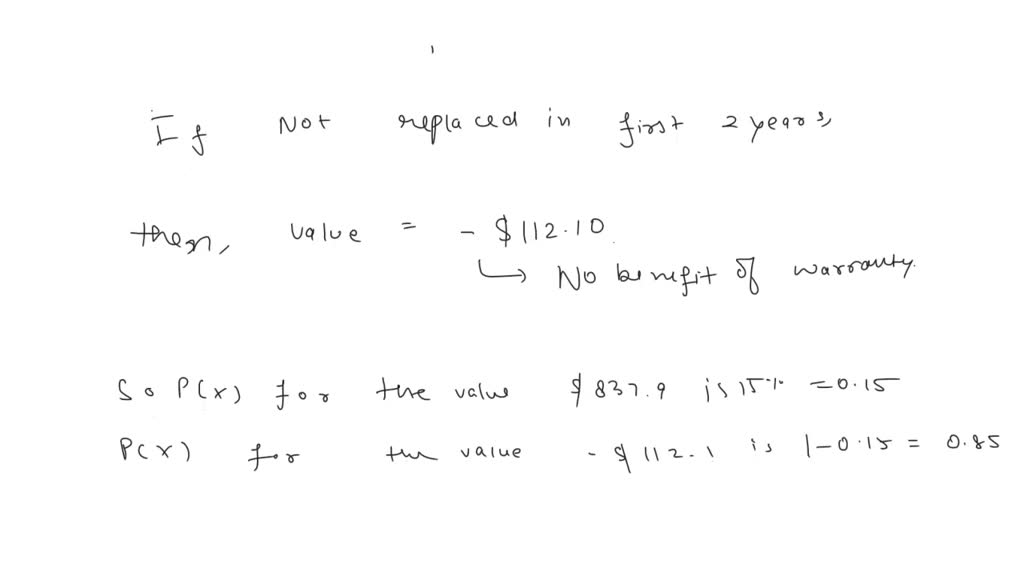 If Not replaced in first 2 years,
then, value = - $112.10
↳ No benefit of warranty.
So P(x) for the value $837.9 is 15% = 0.15
P(x) for the value - $112.1 is 1-0.15 = 0.85